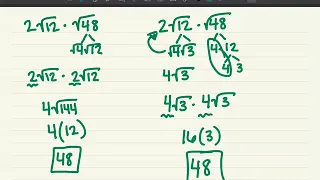 2√12 · √48
√4 √12
2√12 · 2√12
4√144
4(12)
48
2√12 · √48
√4 √3 4 12
4 3
4√3
4√3 · 4√3
16(3)
48